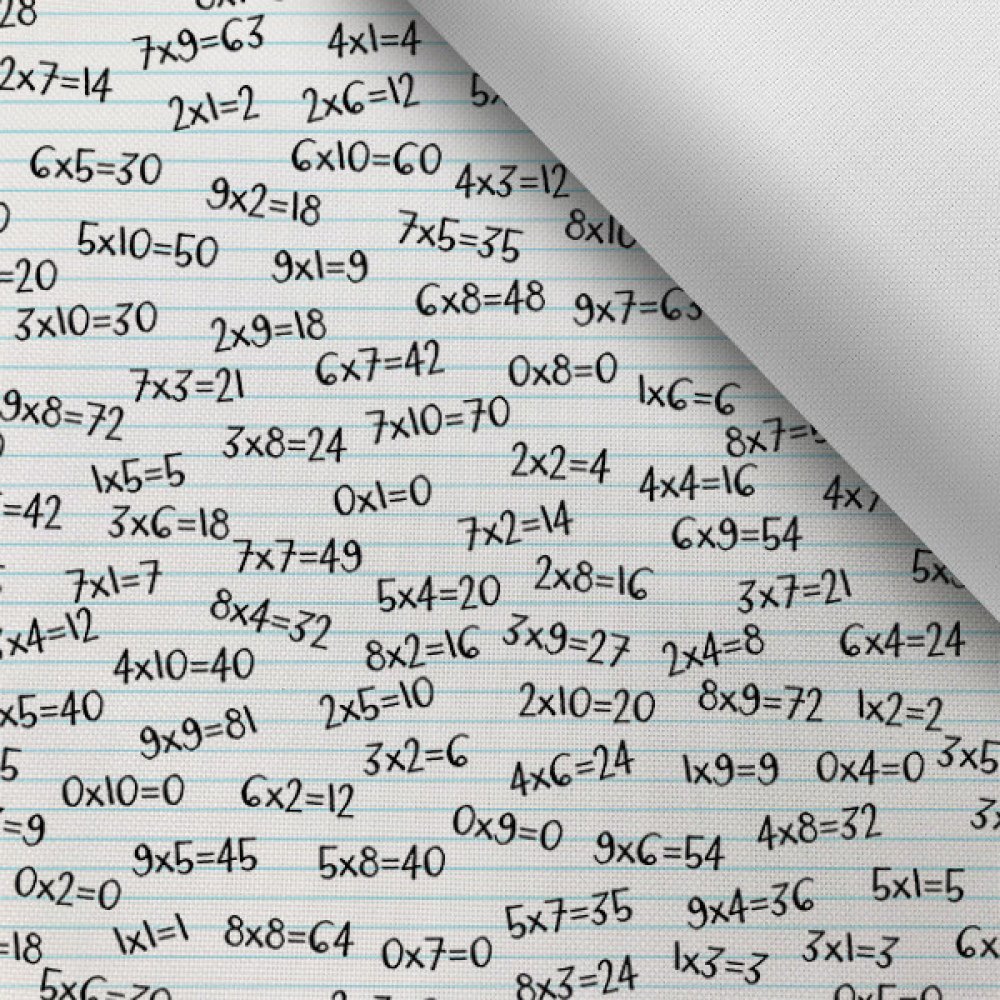 28
7x9=63 4x1=4
2x7=14
2x1=2 2x6=12
6x5=30 6x10=60 4x3=12
9x2=18
5x10=50 7x5=35
=20 9x1=9
6x8=48 9x7=63
3x10=30 2x9=18
6x7=42 0x8=0
7x3=21 1x6=6
9x8=72 7x10=70
3x8=24 8x7=
1x5=5 2x2=4 4x4=16
=42 0x1=0 4x7
3x6=18 7x2=14 6x9=54
7x7=49
7x1=7 5x4=20 2x8=16 3x7=21
x4=12 8x4=32
8x2=16 3x9=27 2x4=8 6x4=24
4x10=40
x5=40 2x5=10 2x10=20 8x9=72 1x2=2
9x9=81
5 3x2=6 4x6=24 1x9=9 0x4=0 3x5
0x10=0 6x2=12
=9 0x9=0 9x6=54 4x8=32
9x5=45 5x8=40
0x2=0 5x7=35 9x4=36 5x1=5
=18 1x1=1 8x8=64 0x7=0 1x3=3 3x1=3 6x
8x3=24